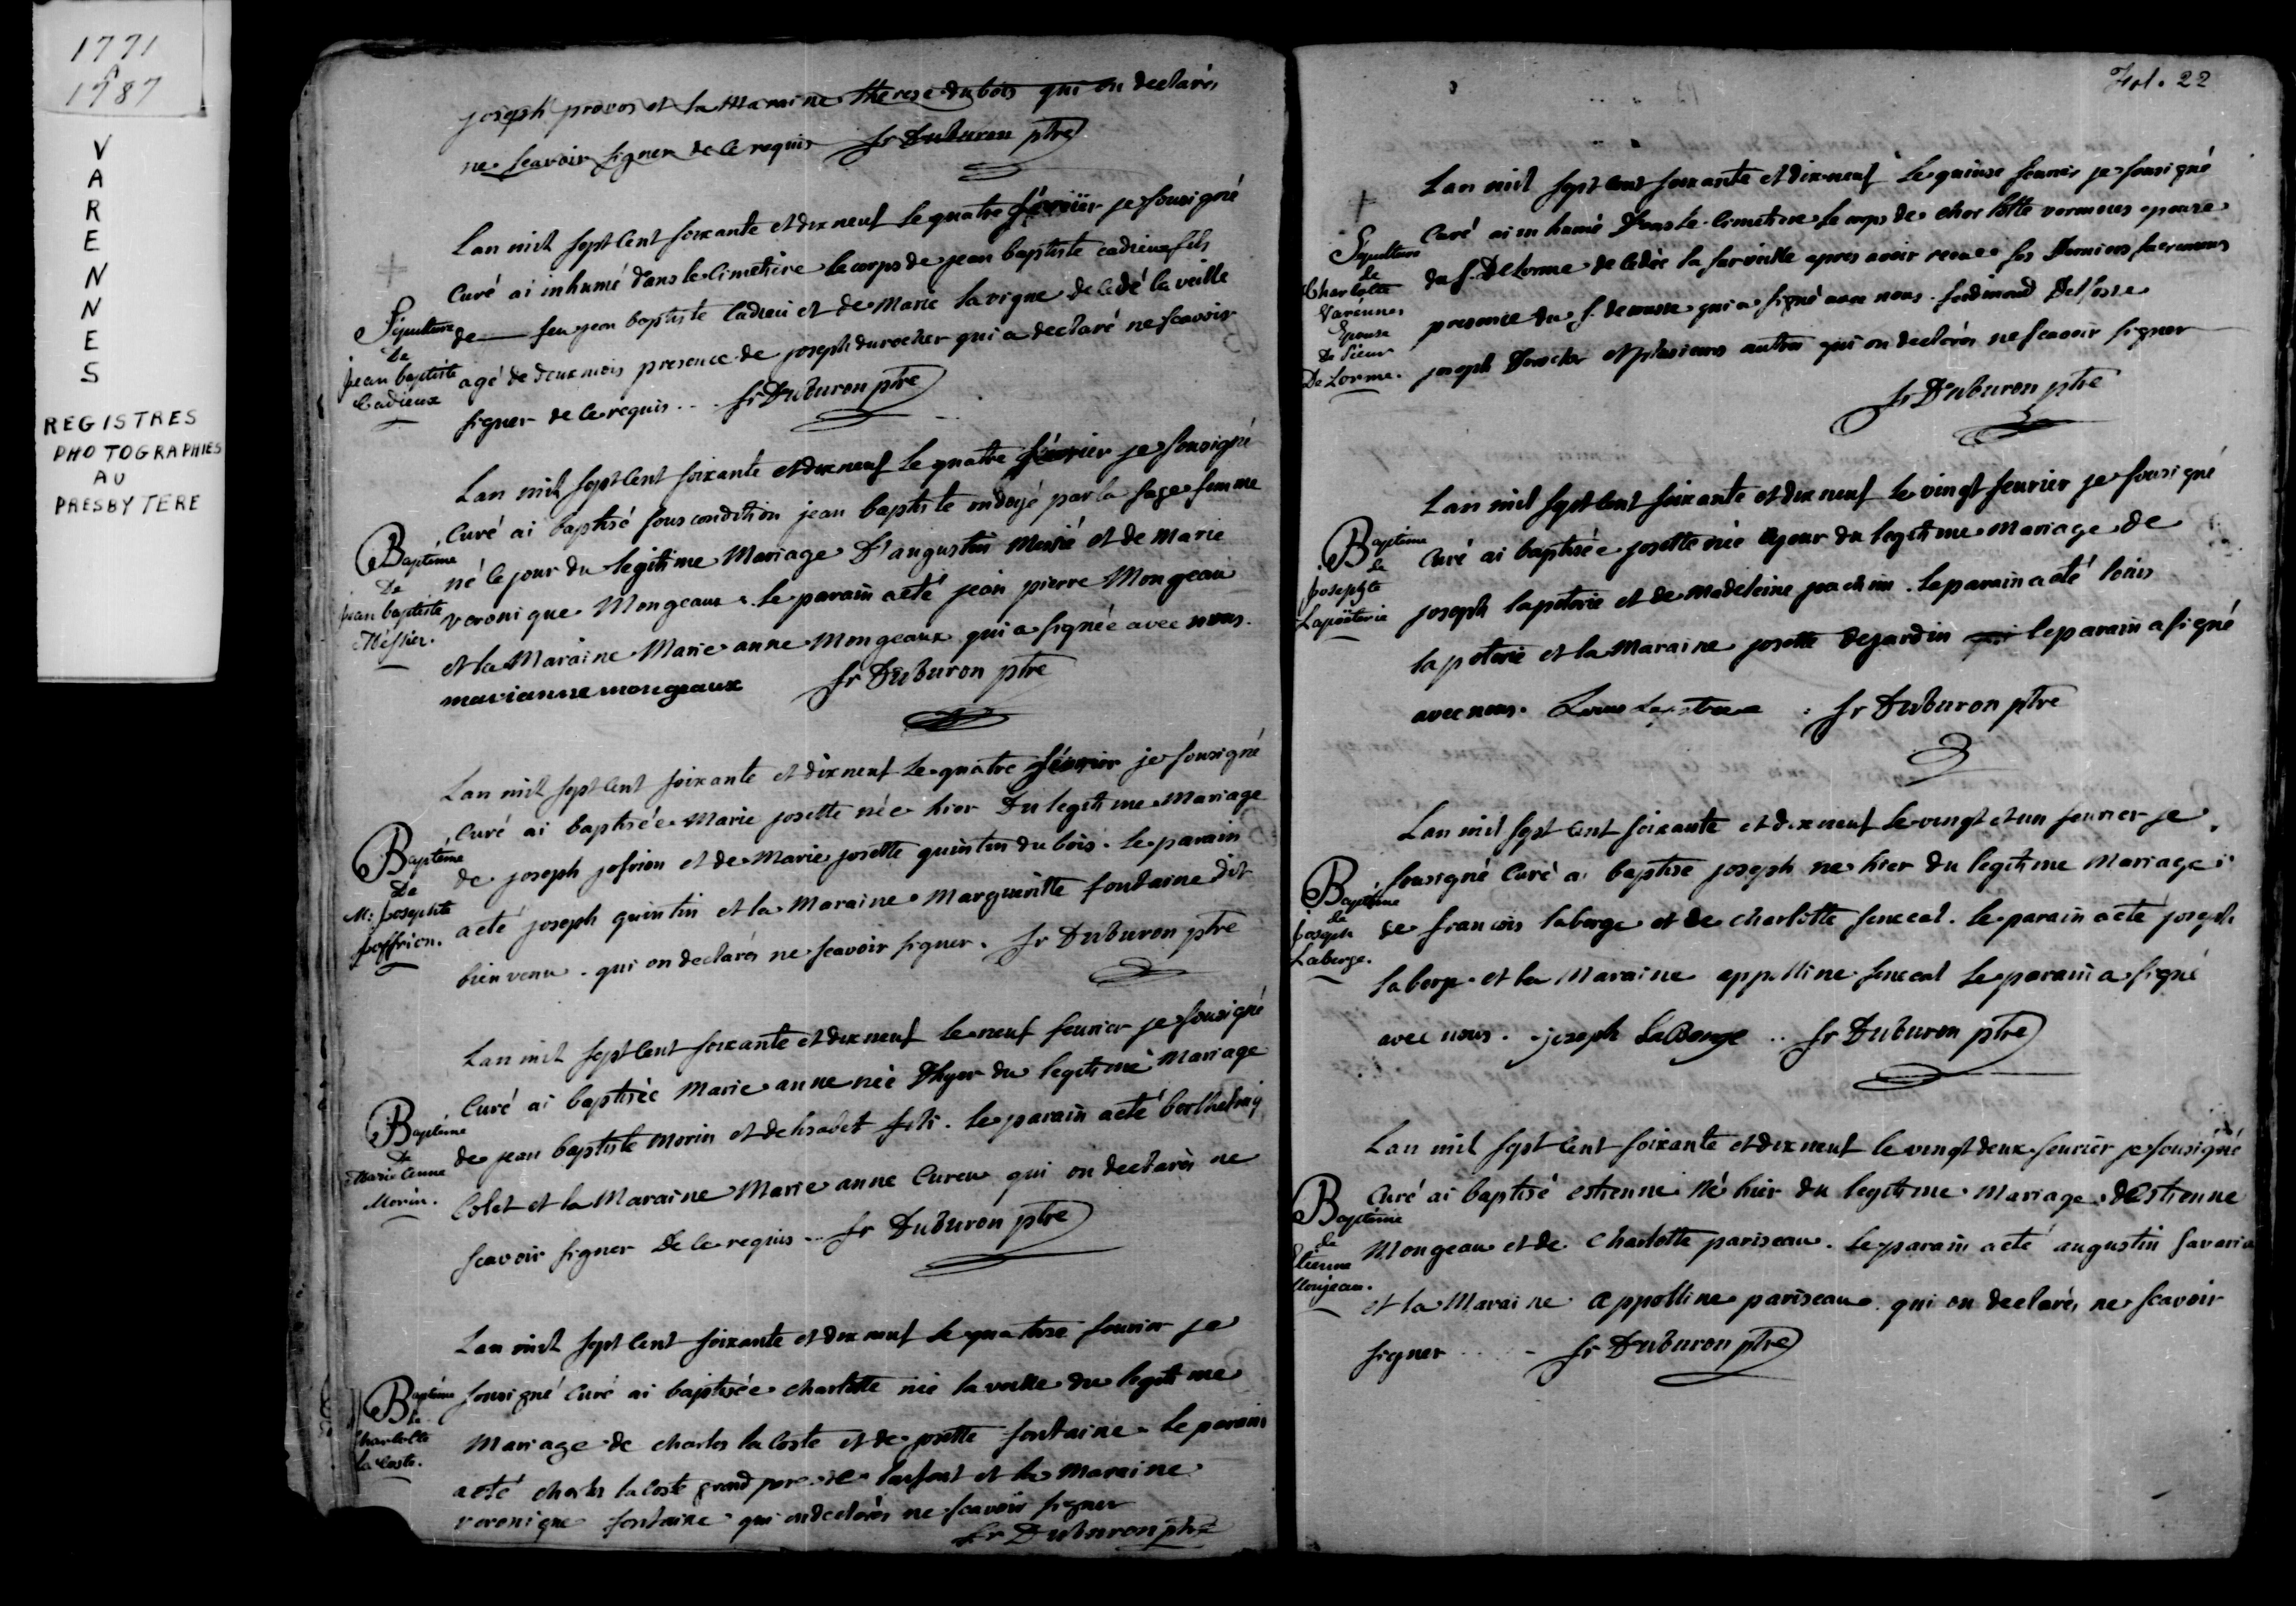 1771
A
1787
V
A
R
E
N
N
E
S
REGISTRES
PHOTOGRAPHIES
AU
PRESBYTERE
joseph provos et la Maraine therese dubois qui on declarés
ne scavoir signer de ce requis fr Duburon ptre
Sepulture
De
jean baptiste
Cadieux
Lan mil sept cent soixante et dix neuf le quatre février je sousigné
Curé ai inhumé dans le cimetiere le corps de jean baptiste cadieux fils
de feu jean baptiste Cadieu et de Marie lavigne decedé la veille
agé de deux mois presence de joseph durocher qui a declaré ne scavoir
signer de ce requis . . fr Duburon ptre
Bapteme
De
jean baptiste
Messier.
Lan mil sept cent soixante et dix neuf le quatre février je sousigné
Curé ai baptisé sous condition jean baptiste ondoyé par la sage femme
né le jour du legitime Mariage D'augustin Messié et de Marie
veronique Mongeaux . le parain a eté jean pierre Mongeau
et la Maraine Marie anne Mongeaux qui a signée avec nous.
marianne mongeaux fr Duburon ptre
Bapteme
De
M: josephte
joffrion.
Lan mil sept cent soixante et dix neuf le quatre février je sousigné
Curé ai baptisée Marie josette née hier Du legitime Mariage
de joseph jofrion et de Marie josette quintin dubois . le parain
a eté joseph quintin et la Maraine Marguerite fontaine dit
bien venu . qui on declarés ne scavoir signer . fr Duburon ptre
Bapteme
De
Marie Anne
Morin.
Lan mil sept cent soixante et dix neuf le neuf feurier je sousigné
Curé ai baptisée Marie anne née D'hyer du legitime Mariage
de jean baptiste Morin et de lisabet . le parain a eté berthelmy
Colet et la Maraine Marie anne Cureu qui on declarés ne
scavoir signer De ce requis .. fr Duburon ptre
Bapteme
De
Charlotte
la Coste.
Lan mil sept cent soixante et dix neuf le quatorse feurier je
sousigné Curé ai baptisée charlotte née la veille du legitime
Mariage de charles la Coste et de josette fontaine . le parain
a eté charles la Coste grand pere de lanfant et la Maraine
veronique fontaine qui on declarés ne scavoir signer
fr Duburon ptre
Fol. 22
Sépulture
de
Charlotte
Varennes
Epouse
De Sieur
De Lorme.
Lan mil sept cent soixante et dix neuf le quinse feurier je sousigné
Curé ai inhumé Dans le Cimetiere le corps de char lotte varennes epouse
du s. De Lorme decedée la surveille apres avoir recue les Derniers sacremens
presence du s. qui a signé avec nous .
joseph et plusieurs autres qui on declarés ne scavoir signer
fr Duburon ptre
Bapteme
de
josephte
Lapoterie
Lan mil sept cent soixante et dix neuf le vingt feurier je sousigné
Curé ai baptisée josette née ce jour du legitime Mariage de
joseph lapoterie et de Madeleine joachim . le parain a eté louis
lapoterie et la Maraine josette dejardin le parain a signé
avec nous . Louis fr Duburon ptre
Bapteme
de
joseph
Laberge.
Lan mil sept cent soixante et dix neuf le vingt et un feurier je
sousigné Curé ai baptisé joseph né hier du legitime Mariage
de francois laberge et de charlotte senecal . le parain a eté joseph
laberge et la Maraine appolline senecal le parain a signé
avec nous . joseph LaBerge .. fr Duburon ptre
Bapteme
de
Etienne
Monjeau.
Lan mil sept cent soixante et dix neuf le vingt deux feurier je sousigné
Curé ai baptisé estienne Né hier du legitime Mariage d'Estienne
Mongeau et de Charlotte pariseau . le parain a eté augustin savaria
et la Maraine Appolline pariseau . qui on declarés ne scavoir
signer fr Duburon ptre